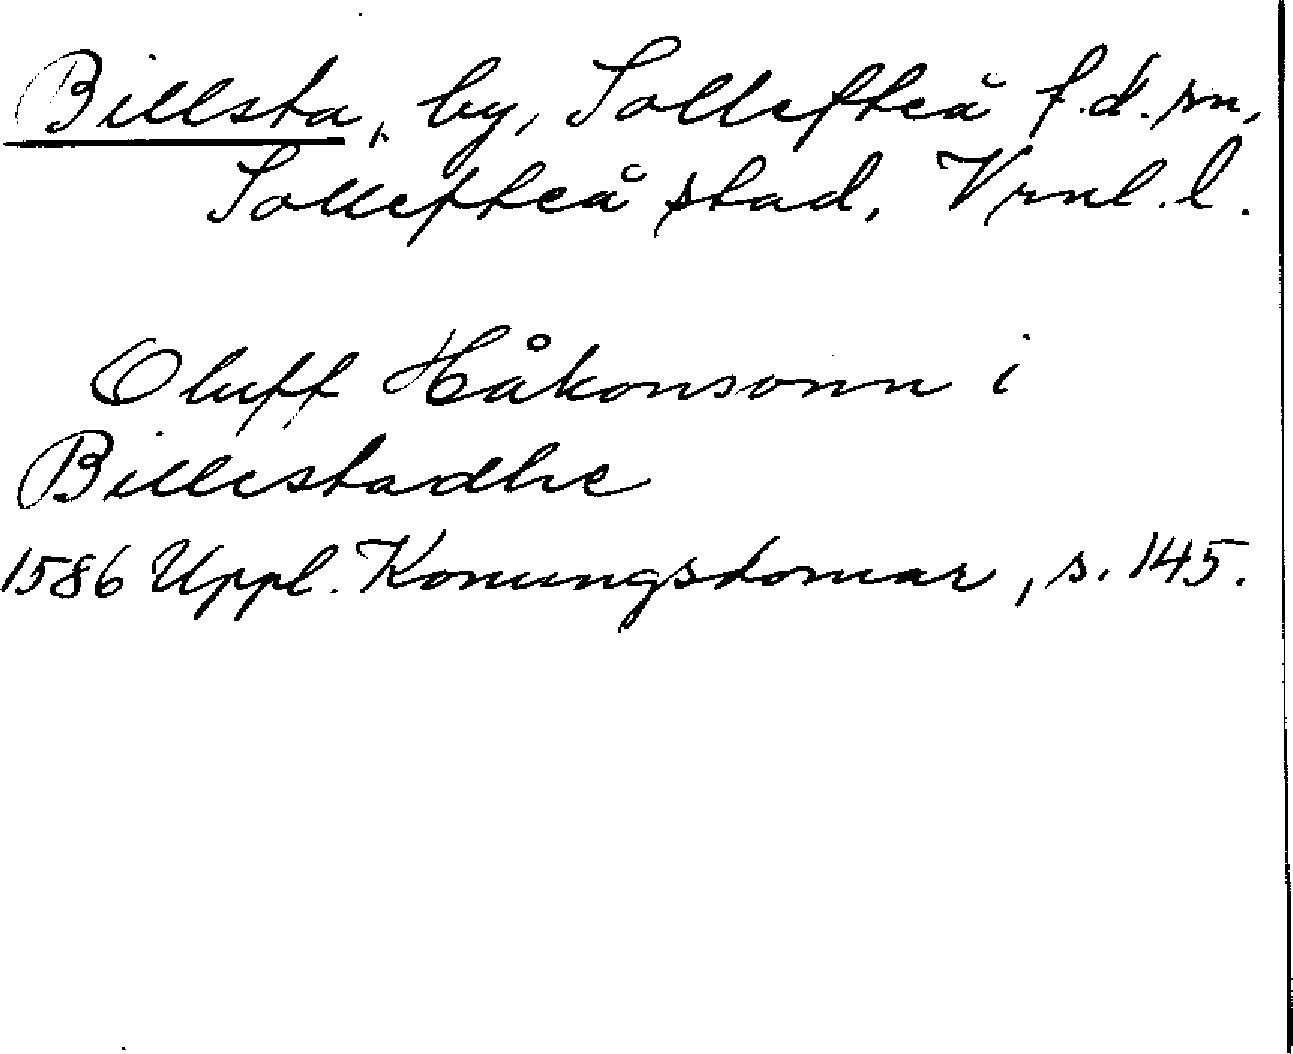 Billsta, by, Sollefteå f.d. sn,
Sollefteå stad, Vrnl. l.
Oluff Håkonsonn i
Billestadhe
1586 Uppl. Konungsdomar, s. 145.